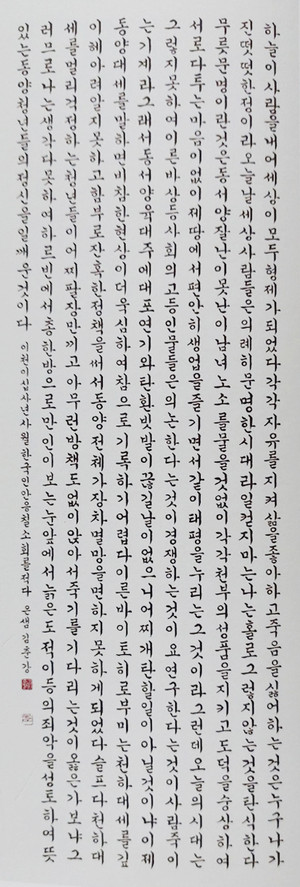 하늘이사람을내어세상이모두형제가되었다각각자유를지켜삶을좋아하고죽음을싫어하는것은누구나가
진떳떳한정이라오늘날세상사람들은의례히문명한시대라일컫지마는나는홀로그렇지않는것을탄식한다
무릇문명이란것은동서양잘난이못난이남녀노소를물을것없이각각천부의성품을지키고도덕을숭상하여
서로다투는마음이없이제땅에서편안히생업을즐기면서같이태평을누리는그것이라그런데오늘의시대는
그렇지못하여이른바상등사회의고등인물들은의논한다는것이경쟁하는것이요연구한다는것이사람죽이
는기계라그래서동서양육대주에대포연기와탄환빗발이끊길날이없으니어찌개탄할일이아닐것이냐이제
동양대세를말하면비참한현상이더욱심하여참으로기록하기어렵다이른바이토히로부미는천하대세를깊
이헤아려알지못하고함부로잔혹한정책을써서동양전체가장차멸망을면하지못하게되었다슬프다천하대
세를멀리걱정하는청년들이어찌팔짱만끼고아무런방책도없이앉아서죽기를기다리는것이옳은가보냐그
러므로나는생각다못하여하르빈에서총한방으로만인이보는눈앞에서늙은도적이등의죄악을성토하여뜻
있는동양청년들의정신을일깨운것이다 이천이십사년사월한국인안응칠소회를적다 온샘김춘강